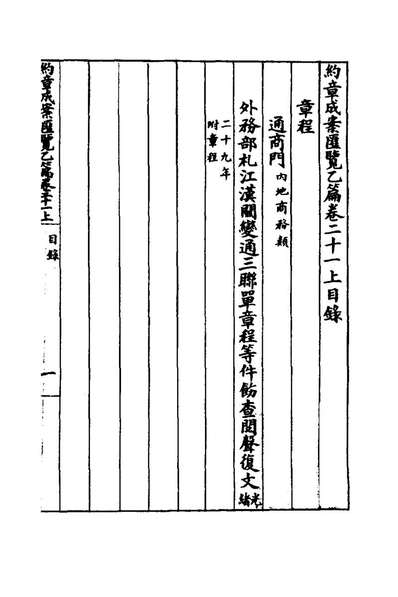 約章成案匯覽乙篇卷二十一上目錄
章程
通商門內地商務類
外務部札江漢關變通三聯單章程等件飭查閱聲復文光緒
二十九年
附章程
約章成案匯覽乙篇卷二十一上 目錄 一